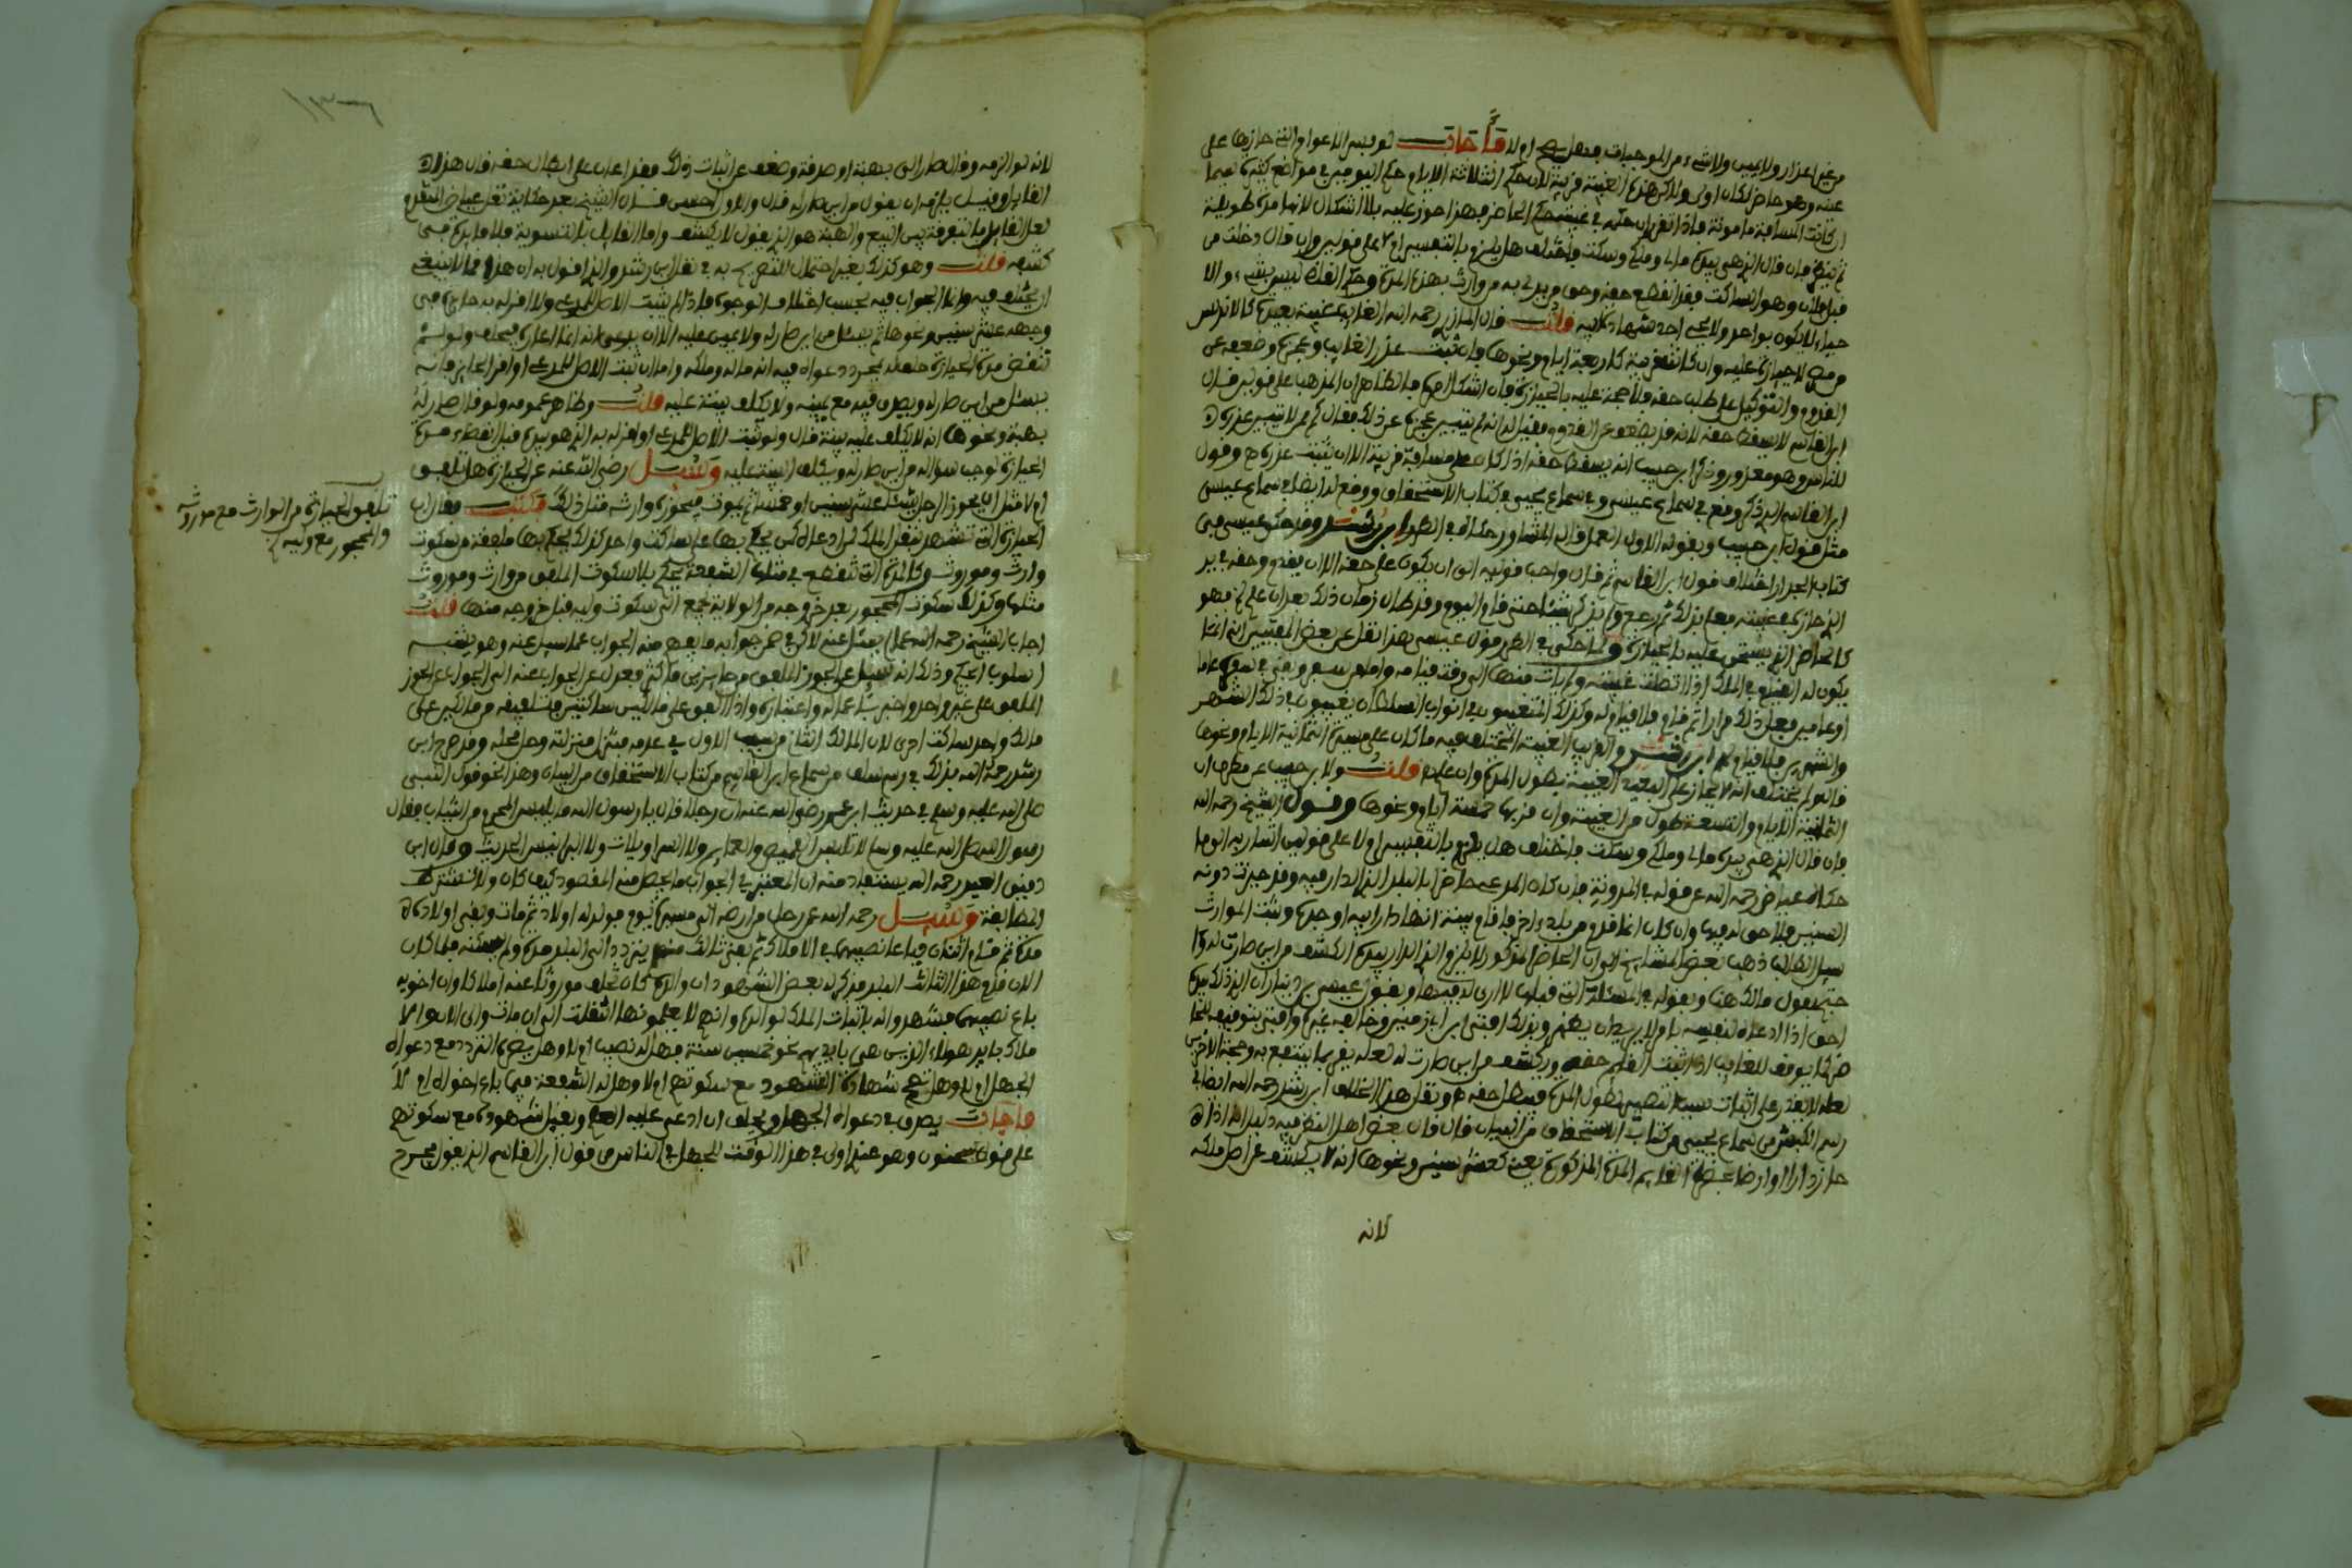 من غير اعذار ولا يمين ولا شيء من الموجبات فهل يصح او لا فأجاب لو قيس الاعوام التي حازها على
عنه وهو حاضر لكان اولى ولاكن هذه الغيبة قريبة لان حكم الثلاثة الايام حكم اليوم في مواضع كثيرة فيما
ان كانت المسافة مامونة فاذا تقرر ان حكمه في غيبته حكم الحاضر فهذا حوز عليه بلا اشكال لانها مدة طويلة
ثم فان قال الذي هي بيده مالي وملكي وسكت فاختلف هل يلزم بالتفسير ام لا على قولين وان قال دخلت من
قبل فلان وهو الساكت فقد انقطع حقه
حياء لا يكون بواحد ولا يجزي احد شهادة ابيه قلت قال المازري رحمه الله الغائب غيبة بعيدة كالاندلس
من مصر لا حيازة عليه وان كانت قريبة كاربعة ايام ونحوها فان ثبت عذر الغائب وعجزه وضعفه عن
القدوم والتوكيل على طلب حقه فلا حجة عليه بالحيازة فان اشكل امره فالظاهر ان المذهب على قولين فقال
ابن القاسم لا يسقط حقه لانه قد يضعف عن القدوم فقيل له انه لم يتبين عجزه عن ذلك فقال كم من لا يتبين عذره
للناس وهو معذور وذكر ابن حبيب انه يسقط حقه اذا كان على مسافة قريبة الا ان يثبت عذره وقول
ابن القاسم الذي ذكر وقع في سماع عيسى وفي سماع يحيى في كتاب الاستحقاق ووقع له ايضا في سماع عيسى
مثل قول ابن حبيب وبقوله الاول العمل قاله المشاور حكاه في الطرر ابن رشد وقد حكى عيسى في
كتاب الجدار اختلاف قول ابن القاسم ثم قال واحب قوليه الي ان يكون على حقه الا ان يقدم وحقه في يد
الذي حازه في غيبته فيعلم بذلك ثم رجع ولم يذكر شيئا حتى قام اليوم وقد طال زمان ذلك بعد ان علم به فهو
كالحاضر الذي يستحق عليه بالحيازة وحكى في الطرر قول عيسى هذا نقل عن بعض المفتين انه انما
يكون له القيام في الملك اذا اتصلت غيبته ولم يات منها الى وقت قيامه واما من سافر وبقي في سفره عاما
او عامين فعل ذلك مرارا ثم قام فلا قيام له وكذلك المتغيبون في ابواب السلطان يغيبون في ذلك الشهر
والشهرين فلا قيام لهم ابن رشد والقريب الغيبة المختلف فيه ما كان على مسيرة الثمانية الايام ونحوها
قال ولم يختلف انه لا يحاز على البعيد الغيبة بطول المدة وان علم قلت ولابن حبيب عن مطرف ان
الثمانية الايام والتسعة طول من الغيبة وان قربها خمسة ايام ونحوها وقول الشيخ رحمه الله
فان قال الذي هي بيده مالي وملكي وسكت فاختلف هل يلزم بالتفسير او لا على قولين اشار به الى ما
حكاه عياض رحمه الله عن قوله في المدونة فان كان المدعي حاضرا بالبلد الذي الدار فيه وقد حيزت دونه
السنين فلا حق له فيها وان كان انما قدم من بلد اخر فاقام بينة انها دار ابيه او جده وثبت المواريث
سيل الطالب ذهب بعض المشايخ الى ان الحاضر المذكور لا يلزم الذي الدار بيده الكشف من اين صارت له
حتى يقول مالك هنا وبقوله في المسئلة التي قبلها لا ارى لقيمها ويقول عيسى بن دينار ان الذي ذلك بيده
احق اذا ادعاه لنفسه
ضركما يوقف للغائب اذا اثبت القائم حقه ويكشف من اين صارت له لعله يقر بما ينتفع به وحجة الاخرين
لعله لا يقدر على اثبات سبب لنفسه بطول المدة فيبطل حقه ونقل هذا الخلاف ابن رشد رحمه الله ايضا في
رسم الكبش من سماع يحيى من كتاب الاستحقاق من البيان قال قال بعض اهل النظر فيه دليل انه اذا
حاز دارا او ارضا بحضرة القائم المدة المذكورة يعني كعشر سنين ونحوها انه لا يكشف عن اصل ملكه
لانه
لانه لو الزمه وقال صار الي بهبة او صدقة وضعف عن اثبات ذلك فقد اعان على ابطال حقه قال هذا
القائل وقيل يلزمه ان يقول من اين صار له قال والاول احسن قال الشيخ بعد حكاية نقل عياض المتقدم
لعل القائل بالتفرقة بين البيع والهبة هو الذي يقول لا يكشف واما القائل بالتسوية فلا فايدة في
كشفه قلت وهو كذلك بغير احتمال للتصريح به في نقل ابن رشد والذي اقول به ان هذا مما لا ينبغي
ان يختلف فيه وانما الجواب فيه بحسب اختلاف الوجوه فاذا لم يثبت الاصل للمدعي ولا اقر له به حاجه في
وجهه عشر سنين ونحوها لم يسئل من اين صار له ولا يمين عليه الا ان يدعي انه انما اعاره فيحلف ولو لم
تنقض مدة الحيازة حلف له بمجرد دعواه فيه انه ماله وملكه واما ان ثبت الاصل للمدعي او اقر الحائز فانه
يسئل من اين صار له ويصدق فيه مع يمينه ولا يكلف بينة عليه قلت وظاهر عمومه ولو قال صار لي
بهبة ونحوها انه لا يكلف عليه بينة قال ولو ثبت الاصل للمدعي او اقر له به الذي هو بيده قبل انقضاء مدة
الحيازة لوجب سؤاله من اين صار له ويكلف البينة عليه وسئل رضي الله عنه عن الحيازة هل تلفق
ام لا مثل ان يحوز الرجل شيئا عشر سنين او خمسا ثم يموت فيحوزه وارثه مثل ذلك فكتب فقال ان
الحيازة التي تشهد بنقل الملك لمن ادعاه كما يحكم بها على ساكت واحد كذلك يحكم بها ملفقة من سكوت
وارث وموروث وكالمدة التي تنقطع في مثلها الشفعة يحكم بالسكوت الملفق من وارث وموروث
مثلها وكذلك سكوت المحجور بعد خروجه من الولاية يجمع الى سكوت وليه قبل خروجه منها قلت
اجاب الشيخ رحمه الله عما لم يسئل عنه لاكن في ضمن جوابه ما يفهم منه الجواب عما سئل عنه وهو يشبه
اسلوب الحكيم وذلك انه سئل عن الحوز الملفق من حائزين فاكثر فعدل عن الجواب عنه الى الجواب عن الحوز
الملفق على غير واحد واخبر باعماله واعتباره واذا لفق على مالكين ساكتين فتلفيقه من مالكين على
مالك واحد ساكت احرى لان المالك الثاني من سبب الاول في عدمه منزل منزلته وحل محله وقد صرح ابن
رشد رحمه الله بذلك في رسم يسلف من سماع ابن القاسم من كتاب الاستحقاق من البيان وهذا نحو قول النبي
صلى الله عليه وسلم في حديث ابن عمر رضي الله عنه ان رجلا قال يا رسول الله ما يلبس المحرم من الثياب فقال
رسول الله صلى الله عليه وسلم لا تلبس القميص والعمائم ولا السراويلات ولا البرانيس الحديث وقال ابن
دقيق العيد رحمه الله يستفاد منه ان المعتبر في الجواب ما يحصل منه المقصود كيف كان ولا تشترط
المطابقة وسئل رحمه الله عن رجل من ارضه الى مسيرة يوم فولد له اولاد ثم مات وبقي اولاده
مدة ثم قام اثنان فباعا نصيبهما في الاملاك ثم بقي ثالث منهم يتردد الى البلد مدة ولم يسكنه فلما كان
الان قدم هذا الثالث البلد فذكر له بعض الشهود ان والده كان تخلف موروثا عنه املاكا وان اخويه
باع نصيبهما فشهدوا له باثبات الملك لوالده وانهم لا يعلمونها انتقلت الى ان مات والى الان والا
ملاك بايد هؤلاء الذين هي بايديهم نحو خمسين سنة فهل له نصيب ام لا وهل يضره التردد مع دعواه
الجهل ام لا وهل تصح شهادة الشهود مع سكوتهم ام لا وهل له الشفعة فيما باع اخواه ام لا
فأجاب يصدق في دعواه الجهل ويحلف ان ادعي عليه العلم ويقبل شهوده مع سكوتهم
على قول سحنون وهو عندي اولى في هذا الوقت للجهل في الناس من قول ابن القاسم الذي يقول بجرح
تلفق الحيازة من الوارث مع موروثه
والمحجور مع وليه